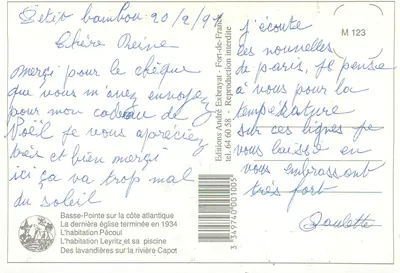 Petit bambou 20/2/97
Chère Reine
Merçi pour le chèque
que vous m'avez envoyez
pour mon cadeau de
Noël je vous apréciez
très et bien merçi
ici ça va trop mal
du soleil
Basse-Pointe sur la côte atlantique
La dernière église terminée en 1934
L'habitation Pécoul
L'habitation Leyritz et sa piscine
Des lavandières sur la rivière Capot
Editions André Exbrayat - Fort-de-France
tel. 64 60 58 - Reproduction interdite
3 349740 001005
M 123
j'écoute
les nouvelles
de paris, je pense
à vous pour la
température
sur ces lignes je
vous laisse en
vous embrassant
très fort
Paulette